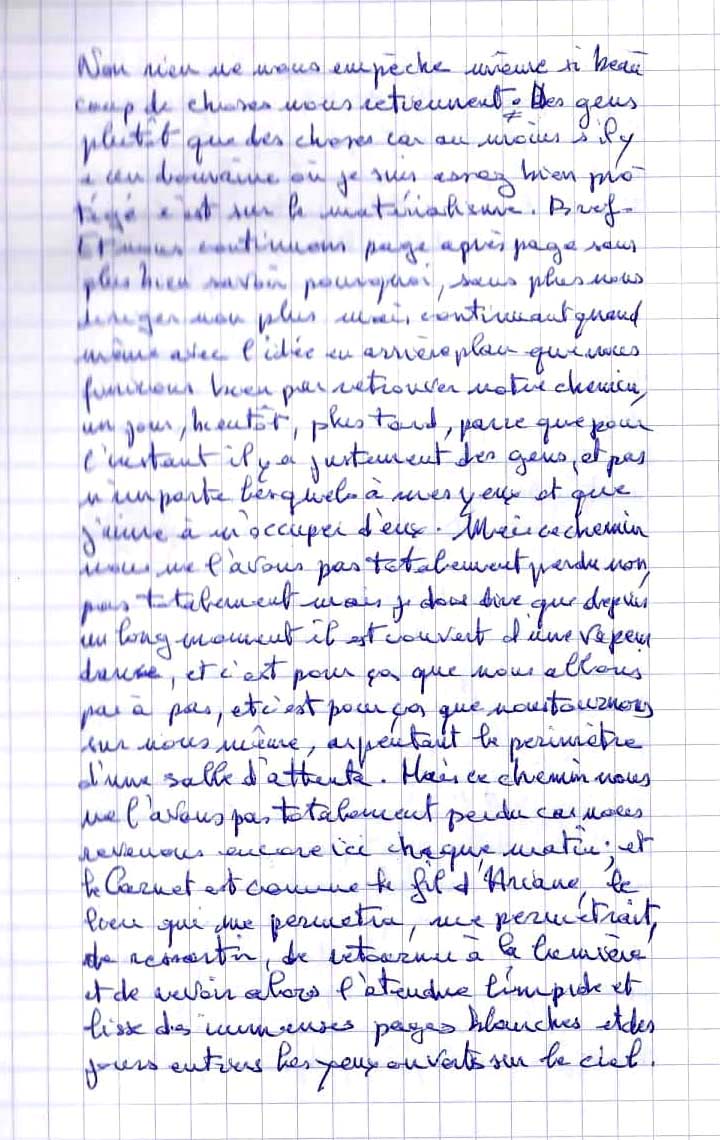 Non rien ne nous empêche même si beau
coup de choses nous retiennent. Des gens
plutôt que des choses car au moins s'il y
a un domaine où je suis assez bien pro
tégé c'est sur le matérialisme. Bref.
Et nous continuons page après page sans
plus bien savoir pourquoi, sans plus nous
diriger non plus mais continuant quand
même avec l'idée en arrière plan que nous
finirons bien par retrouver notre chemin,
un jour, bientôt, plus tard, parce que pour
l'instant il y a justement des gens, et pas
n'importe lesquels à mes yeux et que
j'aime à m'occuper d'eux. Mais ce chemin
nous ne l'avons pas totalement perdu non,
pas totalement mais je dois dire que depuis
un long moment il est couvert d'une vapeur
danse, et c'est pour ça que nous allons
pas à pas, et c'est pour ça que nous tournons
sur nous même, arpentant le périmètre
d'une salle d'attente. Mais ce chemin nous
ne l'avons pas totalement perdu car nous
revenons encore ici chaque matin ; et
le Carnet est comme le fil d'Ariane, le
lien qui me permetra, me permétrait,
de ressortir, de retourner à la lumière
et de revoir alors l'étendue limpide et
lisse des immenses pages blanches et des
jours entiers les yeux ouverts sur le ciel.